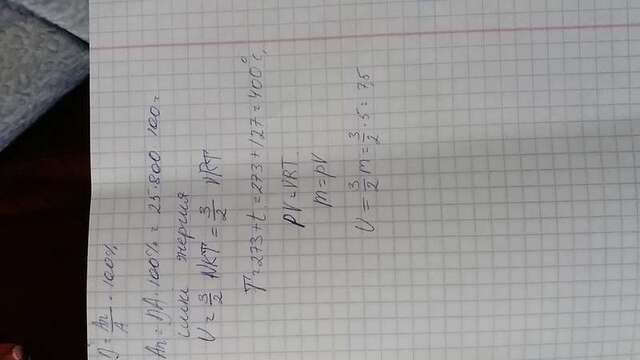 η = Aп/A · 100%
Aп = ηA · 100% = 25 · 800 · 100 =
ішкі энергия
U = 3/2 NKT = 3/2 νRT
T = 273 + t = 273 + 127 = 400°C,
PV = νRT
m = ρV
U = 3/2 m = 3/2 · 5 = 7,5